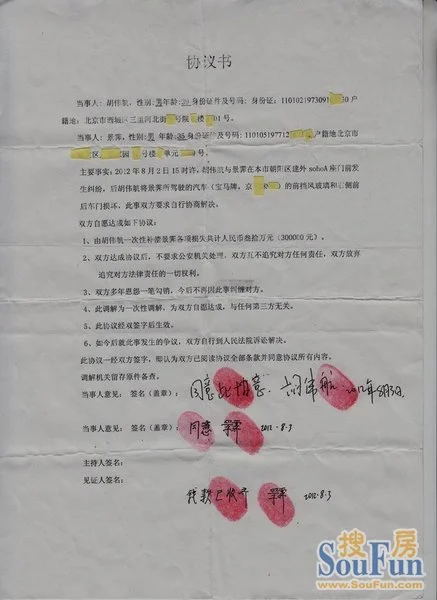 协议书
当事人：胡伟航，性别:男年龄:39身份证件及号码：身份证：11010219730910 30 户
籍地：北京市西城区三里河北街 号院 楼 01 号。
当事人：景霁，性别:男 年龄:35身份证件及号码：110105197712 户籍地北京市
区 园 号楼 单元 号。
主要事实：2012年8月2日15时许，胡伟航与景霁在本市朝阳区建外sohoA座门前发
生纠纷，后胡伟航将景霁所驾驶的汽车（宝马牌，京 ）的前挡风玻璃和 侧前
后车门损坏，此事双方要求自行协商解决。
双方自愿达成如下协议：
1、由胡伟航一次性补偿景霁各项损失共计人民币叁拾万元（300000元）。
2、双方达成协议后，不要求公安机关处理，双方互不追究对方任何责任，双方放弃
追究对方法律责任的一切权利。
3、双方多年恩怨一笔勾销，今后不再因此事纠缠对方。
4、此调解为一次性调解，为双方自愿达成，与任何第三方无关。
5、此协议经双方签字后生效。
6、如今后就此事发生的争议，双方自行到人民法院诉讼解决。
此协议一经双方签字，即认为双方已阅读协议全部条款并同意协议所有内容。
调解机关留存原件备查。
当事人意见： 签名（盖章）： 同意此 意 胡伟航 2012年8月3日
当事人意见： 签名（盖章）： 同意 景霁 2012.8.3
主持人签名：
见证人签名：
钱款已收 景霁 2012.8.3
搜房
SouFun
www.SouFun.com